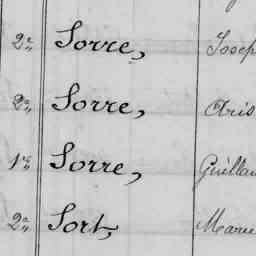 2e Sorre, Josep
2e Sorre, Aris
1re Sorre, Guillau
2e Sort, Marie